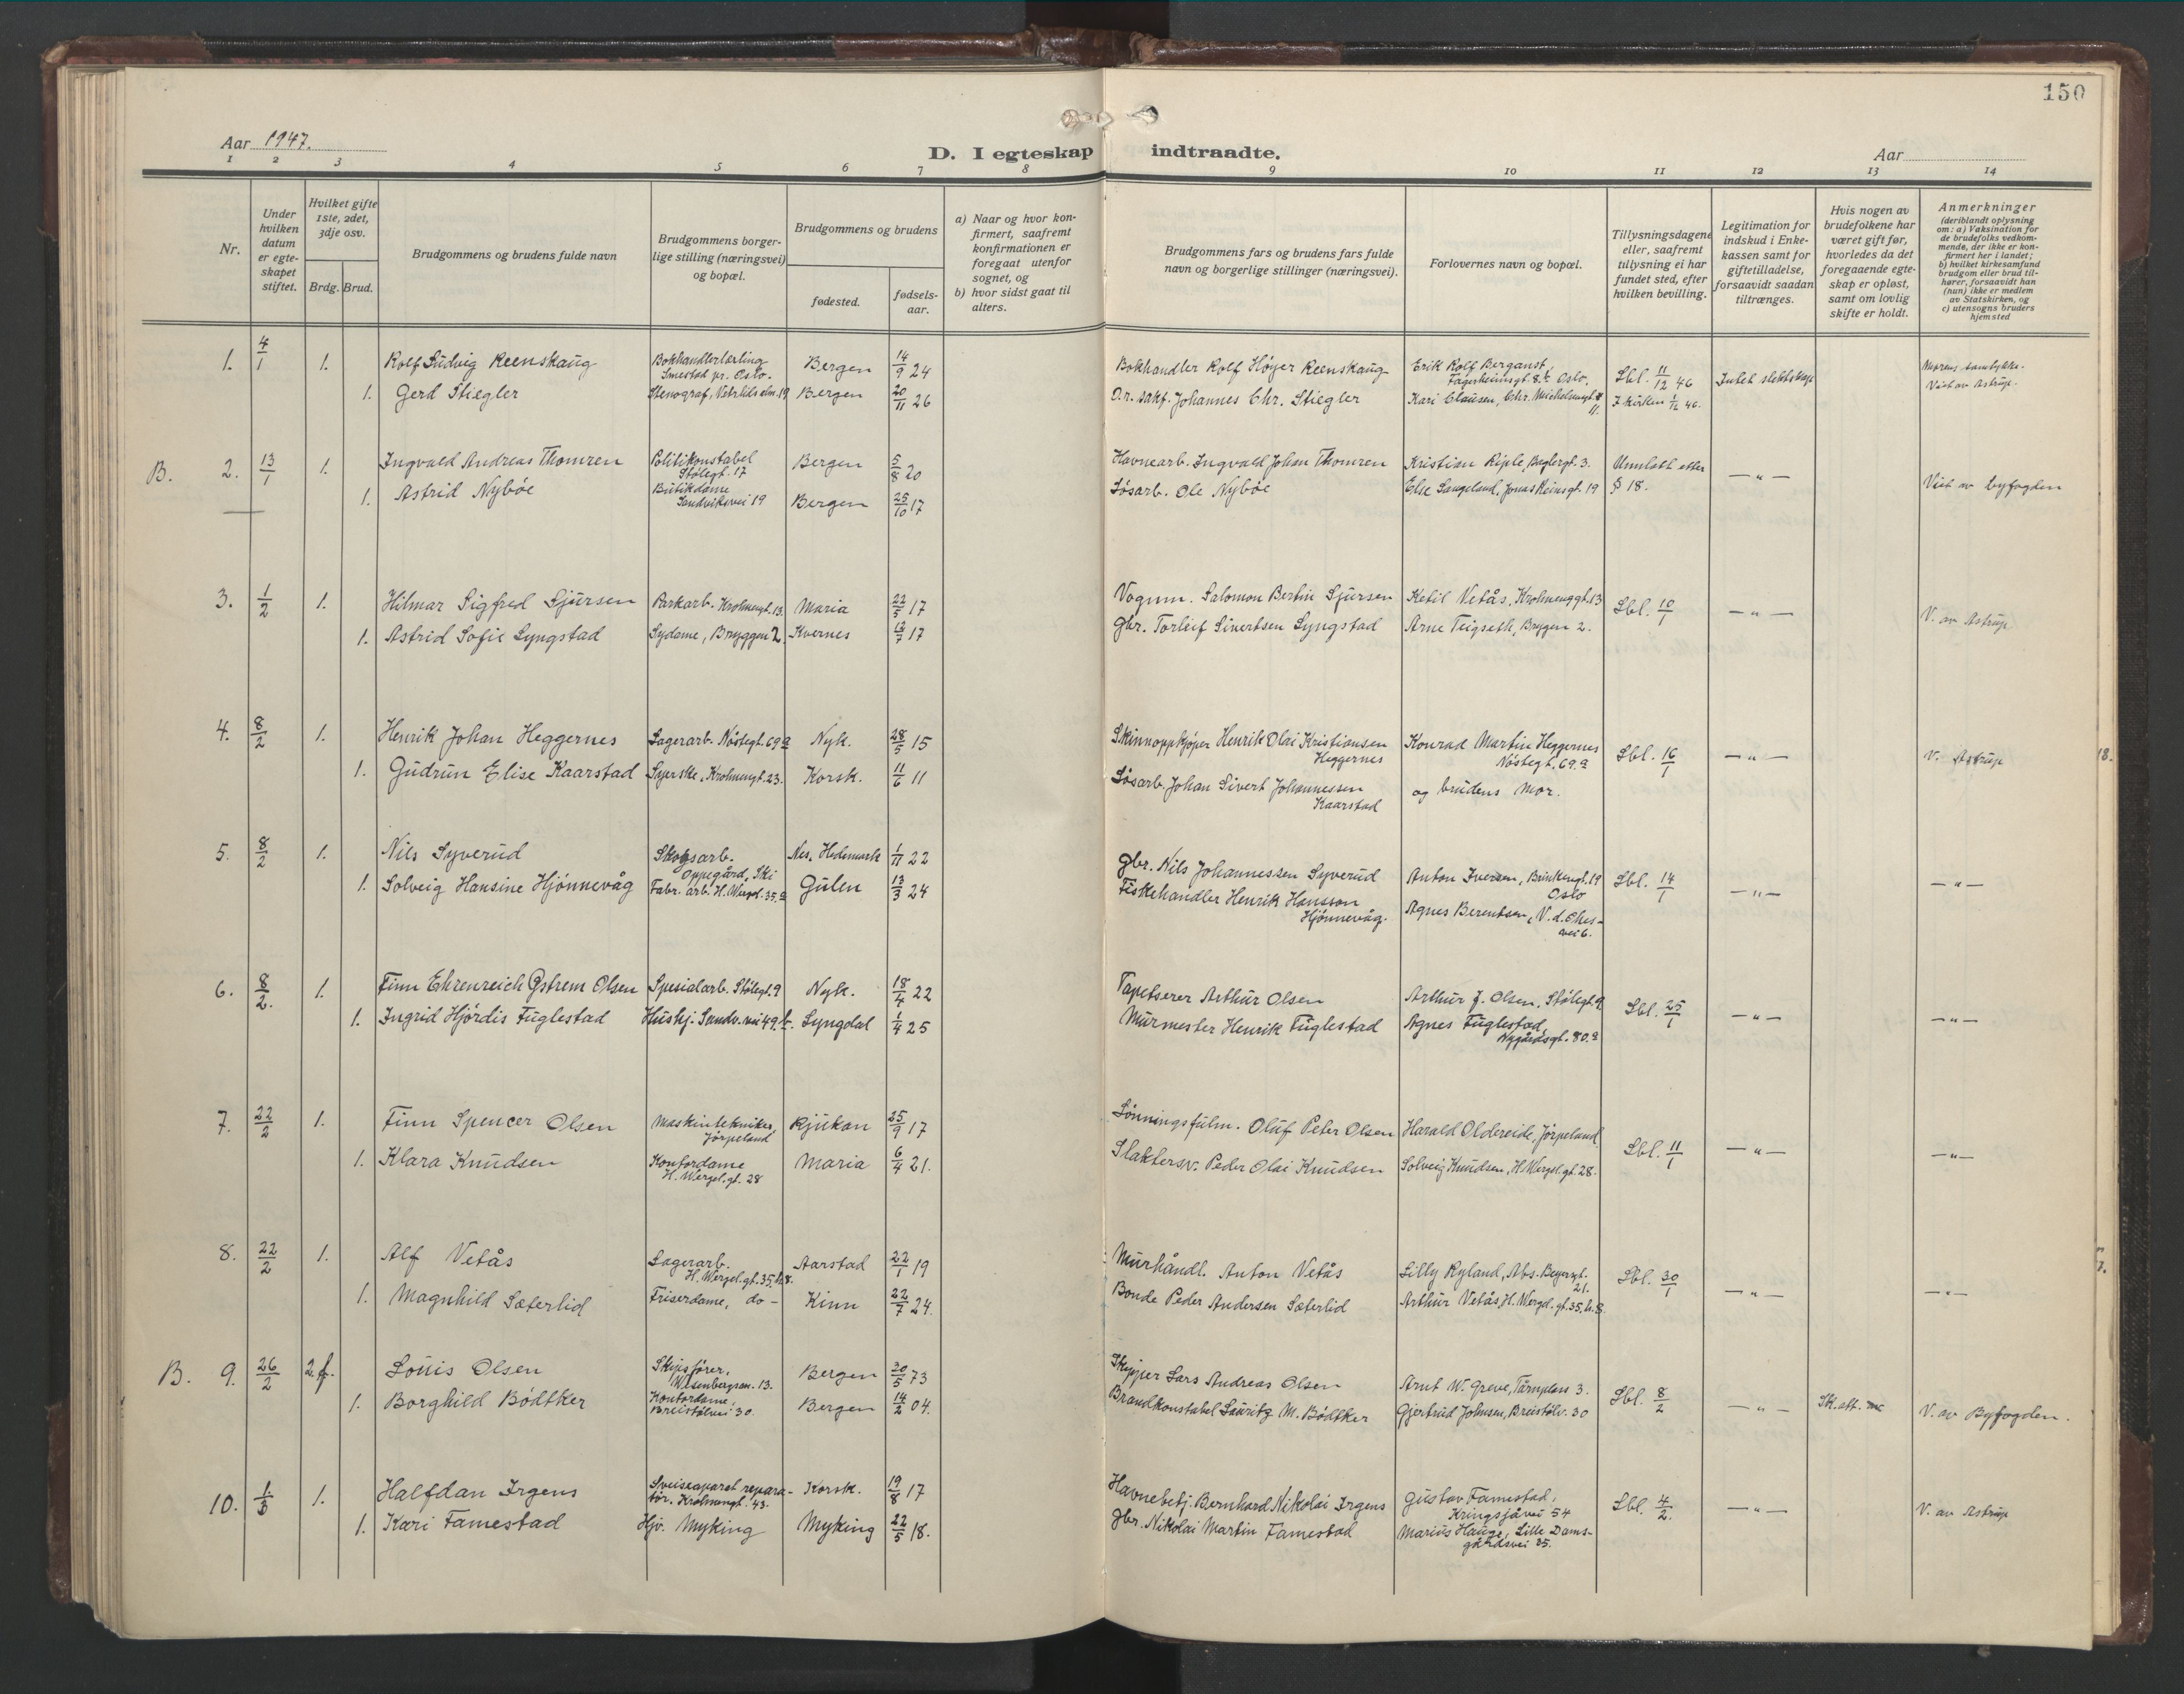 150
Aar 1947.
D. I egteskap indtraadte.
Aar
1 2 3 4 5 6 7 8 9 10 11 12 13 14
Nr.
Under hvilken datum er egteskapet stiftet.
Hvilket gifte 1ste, 2det, 3dje osv.
Brdg. Brud.
Brudgommens og brudens fulde navn
Brudgommens borgerlige stilling (næringsvei) og bopæl.
Brudgommens og brudens
fødested.
fødselsaar.
a) Naar og hvor konfirmert, saafremt konfirmationen er foregaat utenfor sognet, og
b) hvor sidst gaat til alters.
Brudgommens fars og brudens fars fulde navn og borgerlige stillinger (næringsvei).
Forlovernes navn og bopæl.
Tillysningsdagene eller, saafremt tillysning ei har fundet sted, efter hvilken bevilling.
Legitimation for indskud i Enkekassen samt for giftetilladelse, forsaavidt saadan tiltrænges.
Hvis nogen av brudefolkene har været gift før, hvorledes da det foregaaende egteskap er opløst, samt om lovlig skifte er holdt.
Anmerkninger
(deriblandt oplysning om: a) Vaksination for de brudefolks vedkommende, der ikke er konfirmert her i landet; b) hvilket kirkesamfund brudgom eller brud tilhører, forsaavidt han (hun) ikke er medlem av Statskirken, og c) utensogns bruders hjemsted
1. 4/1 1. Rolf Ludvig Reenskaug Bokhandlerlærling Smestad pr. Oslo. Bergen 14/9 24 Bokhandler Rolf Høyer Reenskaug Erik Rolf Berganst, Fagerheimgt. 8. Oslo. Lbl. 11/12 46 Intet slektskap
1. Gerd Stiegler Stenograf, Vetrlids alm. 19 Bergen 20/11 26 O.r. sakf. Johannes Chr. Stiegler Kari Clausen, Chr. Michelsensgt. 11. I kirken 1/12 46. Viet av Astrup.
B. 2. 13/1 1. Ingvald Andreas Thomren Politikonstabel Stølegt. 17 Bergen 5/8 20 Havnearb. Ingvald Johan Thomren Kristian Riple, Baglergt. 3. Unnlatt etter § 18. — " —
1. Astrid Nybøe Butikdame Sandviksvei 19 Bergen 25/10 17 Løsarb. Ole Nybøe Else Langeland, Jonas Reinsgt. 19 Viet av byfogden
3. 1/2 1. Hilmar Sigfred Sjursen Parkarb. Krohnengt. 13. Maria 22/5 17 Vognm. Salomon Bertin Sjursen Ketil Vetås, Krohnenggt. 13 Lbl. 10/1 — " — V. av Astrup
1. Astrid Sofie Lyngstad Sydame, Bryggen 2. Kvernes 12/7 17 Gbr. Torleif Sivertsen Lyngstad Arne Teigseth, Bryggen 2.
4. 8/2 1. Henrik Johan Heggernes Lagerarb. Nøstegt. 69 a Nyk. 28/5 15 Skinnoppkjøper Henrik Olai Kristiansen Heggernes Konrad Martin Heggernes Nøstegt. 69. a Lbl. 16/1 — " — V. Astrup
1. Gudrun Elise Kaarstad Syerske, Krohnengt. 23. Korsk. 11/6 11 Løsarb. Johan Sivert Johannessen Kaarstad og brudens mor.
5. 8/2 1. Nils Syverud Skogsarb. Oppegård, Ski Nes. Hedemark 1/11 22 Gbr. Nils Johannessen Syverud Anton Iversen, Brinkengt. 19 Oslo Lbl. 14/1 — " — — " —
1. Solveig Hansine Hjønnevåg Fabr. arb. H. Wergel. 35. a Gulen 13/3 24 Fiskehandler Henrik Hansson Hjønnevåg. Agnes Berentsen,
6. 8/2. 1. Finn Ehrenreich Østrem Olsen Spesialarb. Stølegt. 9 Nyk. 18/4 22 Tapetserer Arthur Olsen Arthur J. Olsen. Stølegt. 9 Lbl. 25/1 — " — — " —
1. Ingrid Hjördis Fuglestad Hushj. Sandv. vei 49. b. Lyngdal 1/4 25 Murmester Henrik Fuglestad Agnes Fuglestad, Nygårdsgt. 80. a
7. 22/2 1. Finn Spencer Olsen Maskintekniker, Jørpeland Rjukan 25/9 17 Lønningsfulm. Oluf Peter Olsen Harald Oldereide, Jørpeland Lbl. 11/1 — " — — " —
1. Klara Knudsen Kontordame H. Wergel. gt. 28 Maria 6/4 21. Slaktersv. Peder Olai Knudsen Solveig Knudsen, H. Wergel. gt. 28.
8. 22/2 1. Alf Vetås Lagerarb. H. Wergel. gt. 35, h. 8. Aarstad 22/1 19 Murhåndl. Anton Vetås Lilly Ryland, Abs. Beyersgt. 21. Lbl. 30/1 — " — — " —
1. Magnhild Sæterlid Friserdame, do — Kinn 22/7 24. Bonde Peder Andersen Sæterlid Arthur Vetås, H. Wergel. gt. 35, h. 8.
B. 9. 26/2 2. f. Louis Olsen Skipsfører, Wesenbergsm. 13. Bergen 30/5 73 Skipper Lars Andreas Olsen Arnt W. Greve, Tårnplass 3. Lbl. 8/2 — " — Sk. att. V. av Byfogden.
1. Borghild Bødtker Kontordame, Breistølsvei 30. Bergen 14/2 04. Brandkonstabel Lauritz M. Bødtker Gjertrud Johnsen, Breistølv. 30
10. 1/3 1. Halfdan Irgens Sveiseaparat reparatør. Krohnengt. 43. Korsk. 19/8 17 Havnebetj. Bernhard Nikolai Irgens Gustav Famestad, Kringsjåvei 54 Lbl. 4/2. — " — V. av Astrup
1. Kari Famestad Hjv. Myking Myking 22/5 18. Gbr. Nikolai Martin Famestad Marius Hauge, Lille Damsgårdsvei 25.
18.
7.